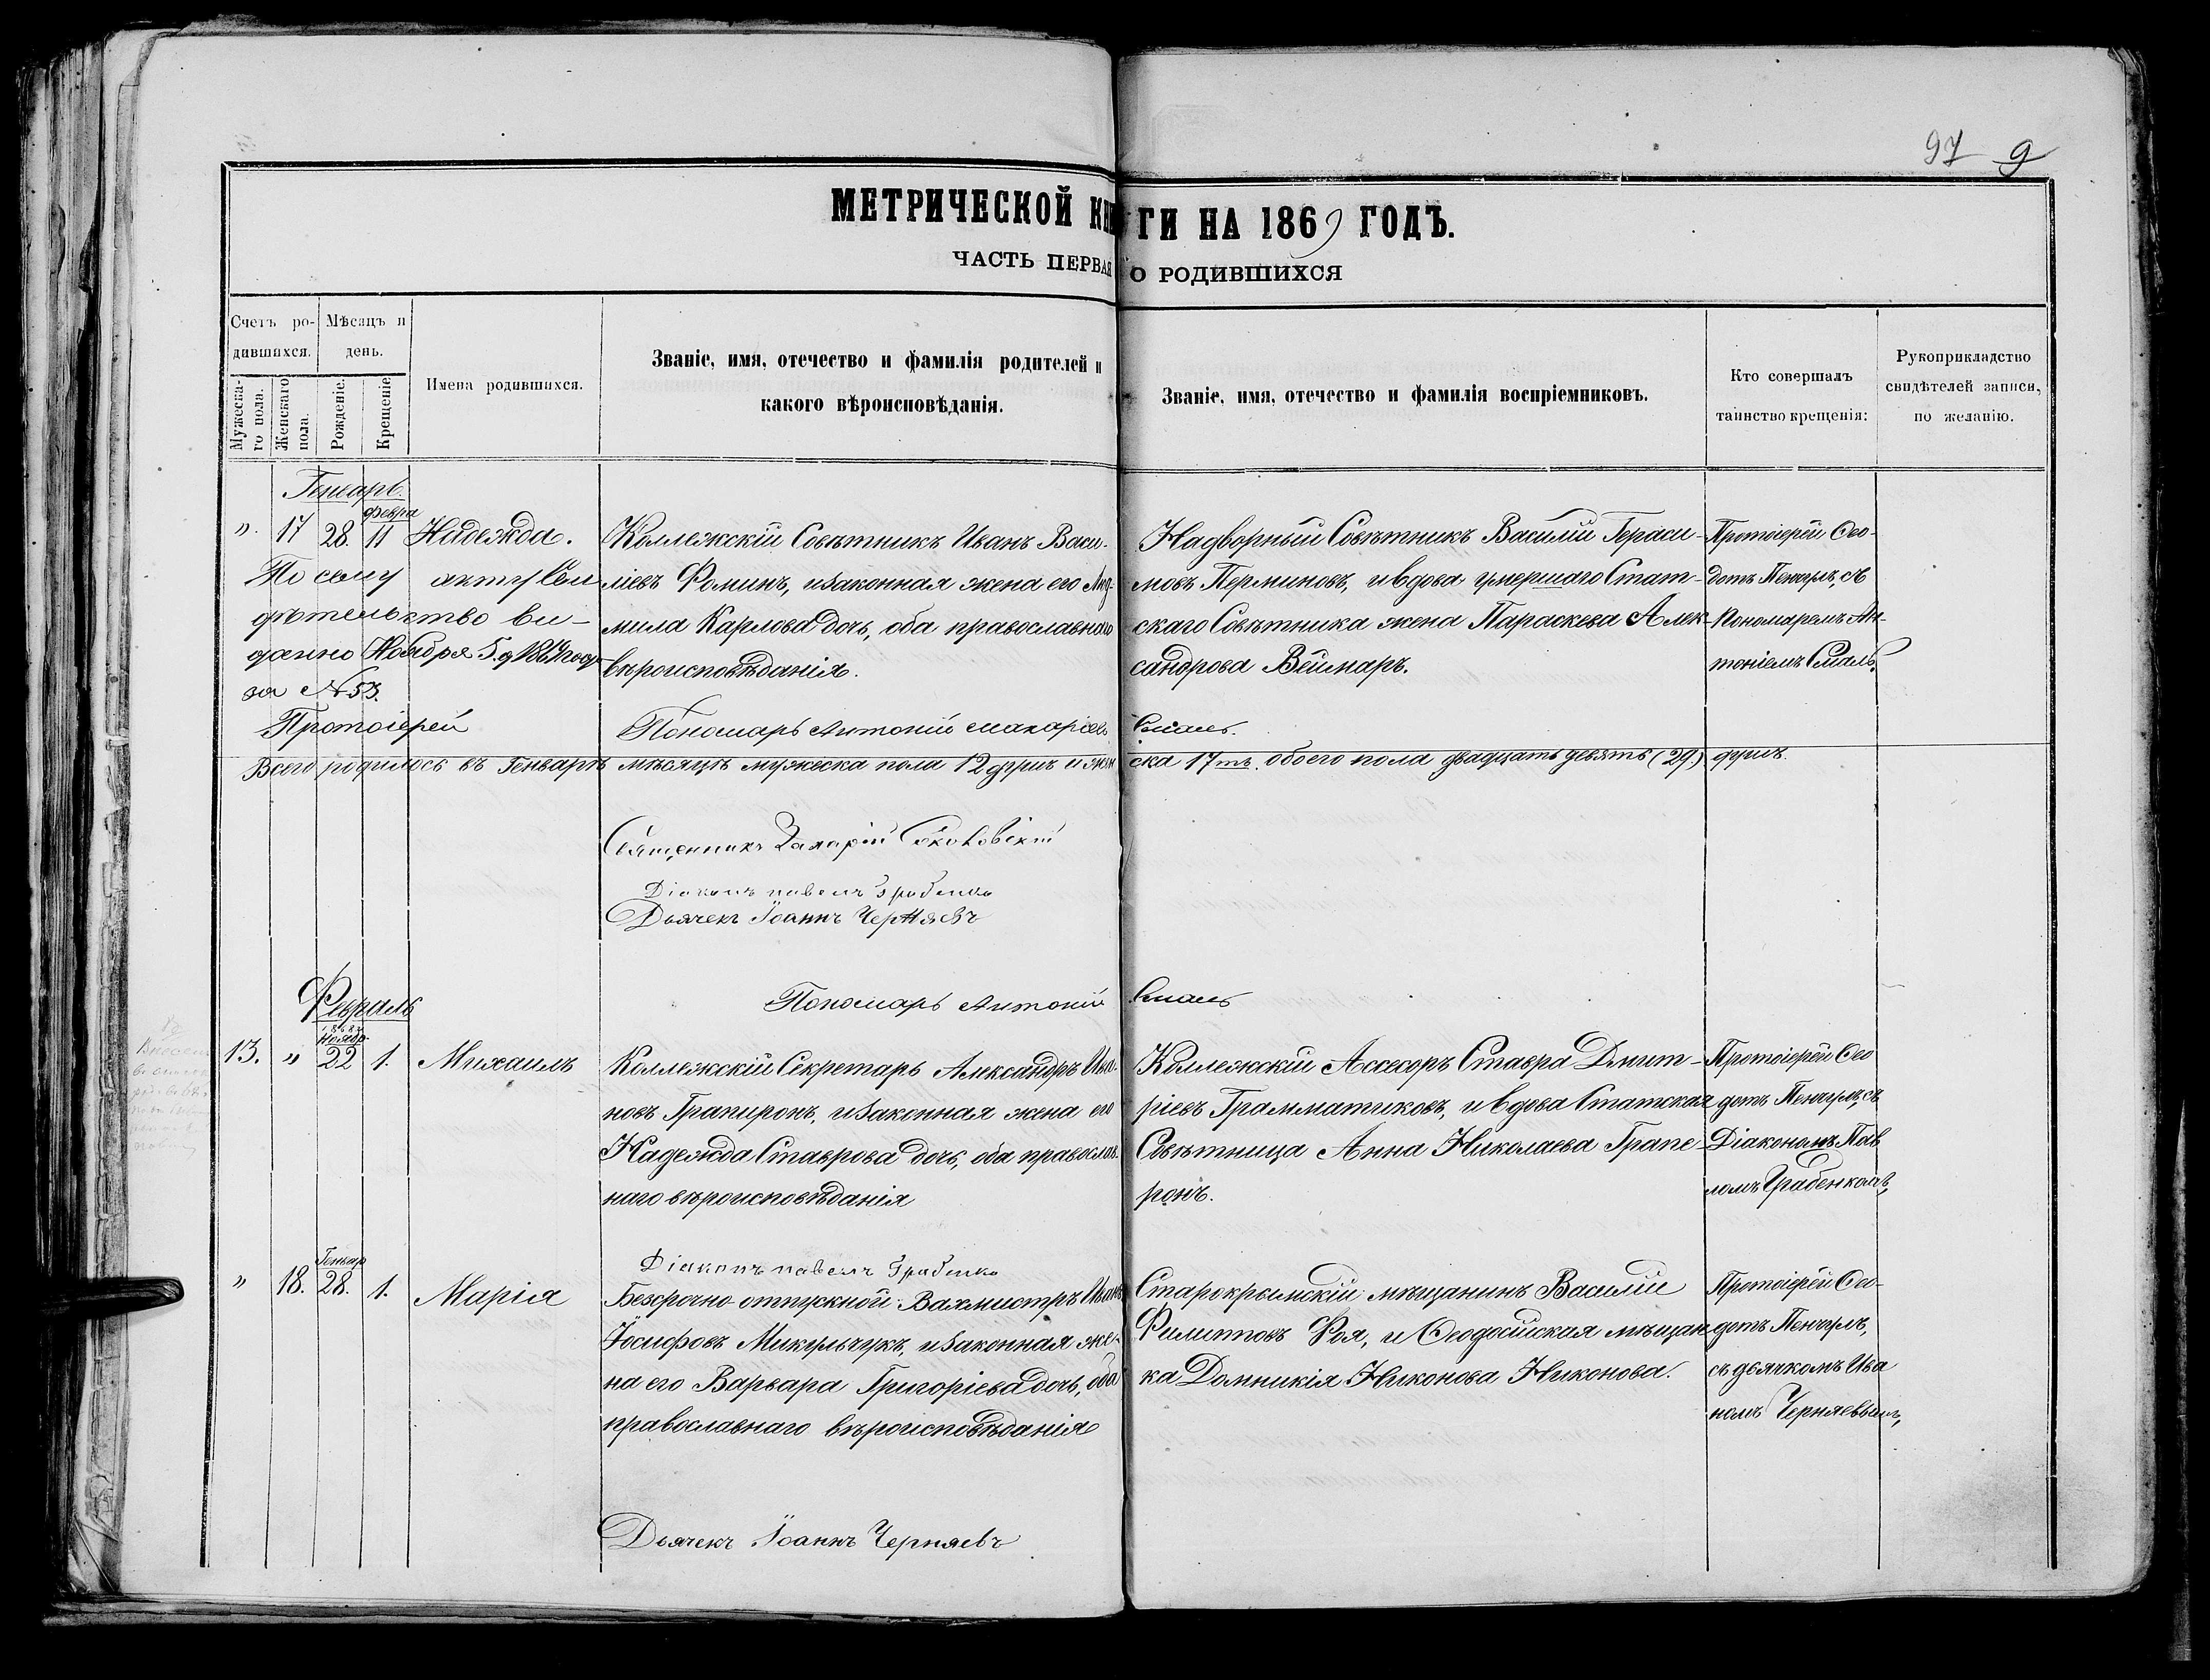 97 9
МЕТРИЧЕСКОЙ КНИГИ НА 1869 ГОДЪ.
ЧАСТЬ ПЕРВАЯ О РОДИВШИХСЯ
Счетъ родившихся.
Мѣсяцъ и день.
Мужескаго пола.
Женскаго пола.
Рожденіе.
Крещеніе.
Имена родившихся.
Званіе, имя, отечество и фамилія родителей и
какого вѣроисповѣданія.
Званіе, имя, отечество и фамилія воспріемниковъ.
Кто совершалъ
таинство крещенія:
Рукоприкладство
свидѣтелей записи,
по желанію.
Генварь.
" 17 28. Февра 11 Надежда.
По сему акту Сви-
дѣтельство вы-
данно Ноября 5. д 1869 года
за № 53.
Протоіерей
Коллежскій Совѣтникъ Иванъ Васи-
ліевъ Фоминъ, и законная жена его Люд-
мила Карлова дочь, оба православнаго
вѣроисповѣданія.
Надворный Совѣтникъ Василій Гераси-
мовъ Перминовъ, и вдова умершаго Стат-
скаго Совѣтника жена Параскева Алек-
сандрова Веймаръ.
Протоіерей Ѳео-
дотъ Пенчулъ, съ
Пономаремъ Ан-
тоніемъ Смаль.
Пономарь Антоній Макаріевъ Смаль.
Всего родилось въ Генварѣ мѣсяцѣ мужеска пола 12 душъ и женска 17ть. обоего пола двадцать девять (29) душъ.
Священникъ Захарій
Діаконъ Павелъ Грабенко
Дьячекъ Іоаннъ Черняевъ
Пономарь Антоній Смаль
Февраль
13. " 1868 Ноябр. 22 1. Михаилъ
Коллежскій Секретарь Александръ Ива-
новъ Грапиронъ, и законная жена его
Надежда Ставрова дочь, оба православ-
наго вѣроисповѣданія
Коллежскій Ассесоръ Ставра Дмит-
ріевъ Грамматиковъ, и вдова Статская
Совѣтница Анна Николаева Грапе-
ронъ.
Протоіерей Ѳео
дотъ Пенчулъ, съ
Діакономъ Пав
ломъ Грабенкомъ,
Діаконъ Павелъ Грабенко
" 18. Генвар 28. 1. Марія
Безсрочно отпускной Вахмистръ Иванъ
Іосифовъ Микульчукъ, и законная же-
на его Варвара Григоріева дочь, оба
православнаго вѣроисповѣданія
Старокрымскій мѣщанинъ Василій
Филиповъ Фоя, и Ѳеодосійская мѣщан
ка Домникія Никонова Никонова.
Протоіерей Ѳео-
дотъ Пенчулъ,
съ дьячкомъ Ива
номъ Черняевымъ,
Дьячекъ Іоаннъ Черняевъ